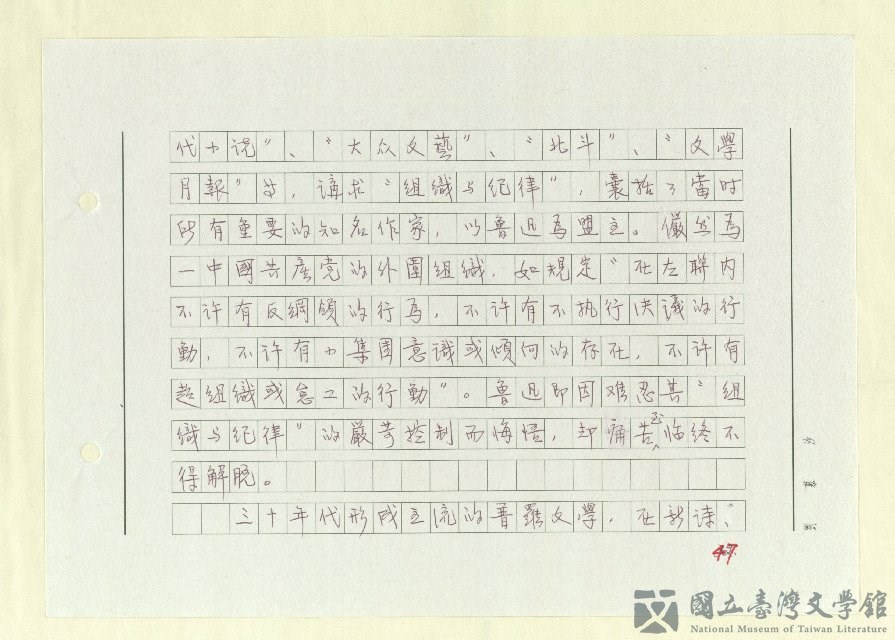 代小说”、“大众文藝”、“北斗”、“文學
月報”等，講求“組織与纪律”，囊括了當时
所有重要的知名作家，以魯迅為盟主。儼然為
一中國共產党的外圍組織，如規定“在左聯内
不许有反綱領的行為，不许有不执行决議的行
動，不许有小集團意識或傾向的存在，不许有
超組織或怠工的行動”。魯迅即因难忍其“組
織与纪律”的嚴苛控制而悔悟，却痛苦至临终不
得解脱。
三十年代形成主流的普羅文學，在新诗、
47
國立臺灣文學館
National Museum of Taiwan Literature